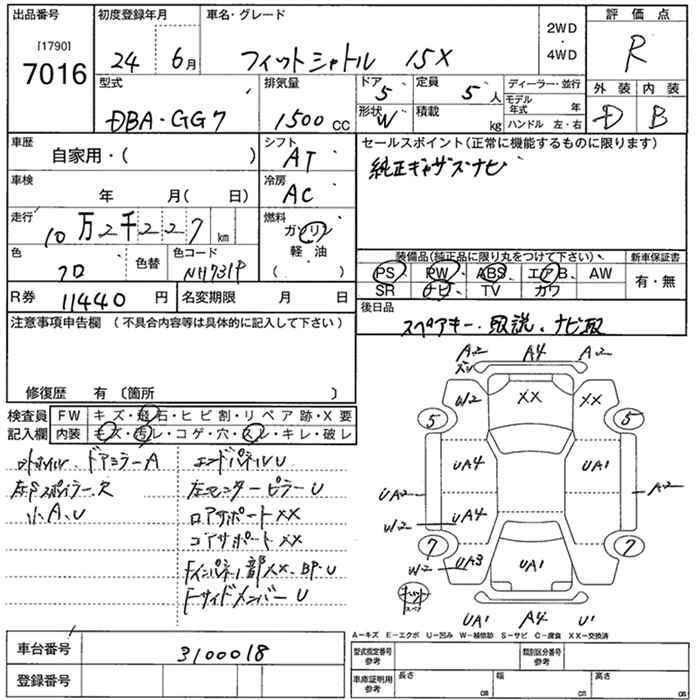 出品番号 初度登録年月 車名・グレード 2WD・4WD 評価点
[1790]
7016
24年 6月 フィットシャトル 15X R
型式 排気量 ドア 5 定員 5人 ディーラー・並行 外装 内装
DBA・GG7 1500cc 形状 W 積載 kg モデル年式 年 D B
ハンドル 左・右
車歴 自家用・( ) シフト AT セールスポイント(正常に機能するものに限ります)
純正ギャザズナビ
車検 年 月( 日) 冷房 AC
走行 10万2千227km 燃料 ガソリン
軽油
( )
色 クロ 色替 色コード NH731P
装備品(純品に限り丸をつけて下さい) 新車保証書
PS PW ABS エアB AW 有・無
SR ナビ TV カワ
R券 11440円 名変期限 月 日 後日品
スペアキー・取説、ナビ取
注意事項申告欄 (不具合内容等は具体的に記入して下さい)
修復歴 有 〔箇所 〕
検査員 FW キズ・飛石・ヒビ割・リペア跡・X要
記入欄 内装 キズ・汚レ・コゲ・穴・スレ・キレ・破レ
ドアミラーA エンドパネルU
小A、U センターピラーU
ロアサポートXX
コアサポートXX
Fインパネ部XX、BP、U
FサイドメンバーU
A2 A4 A2
W2 XX XX
5 5
UA4 UA1
UA2 A2
W2 UA4
7 7
W2 UA3 UA1
UA1 A4 U1
A−キズ E−エクボ U−凹み W−補修跡 S−サビ C−腐食 XX−交換済
車台番号 3100018 型式指定番号参考 類別区分番号参考
登録番号 車庫証明用参考 長さ cm 幅 cm 高さ cm